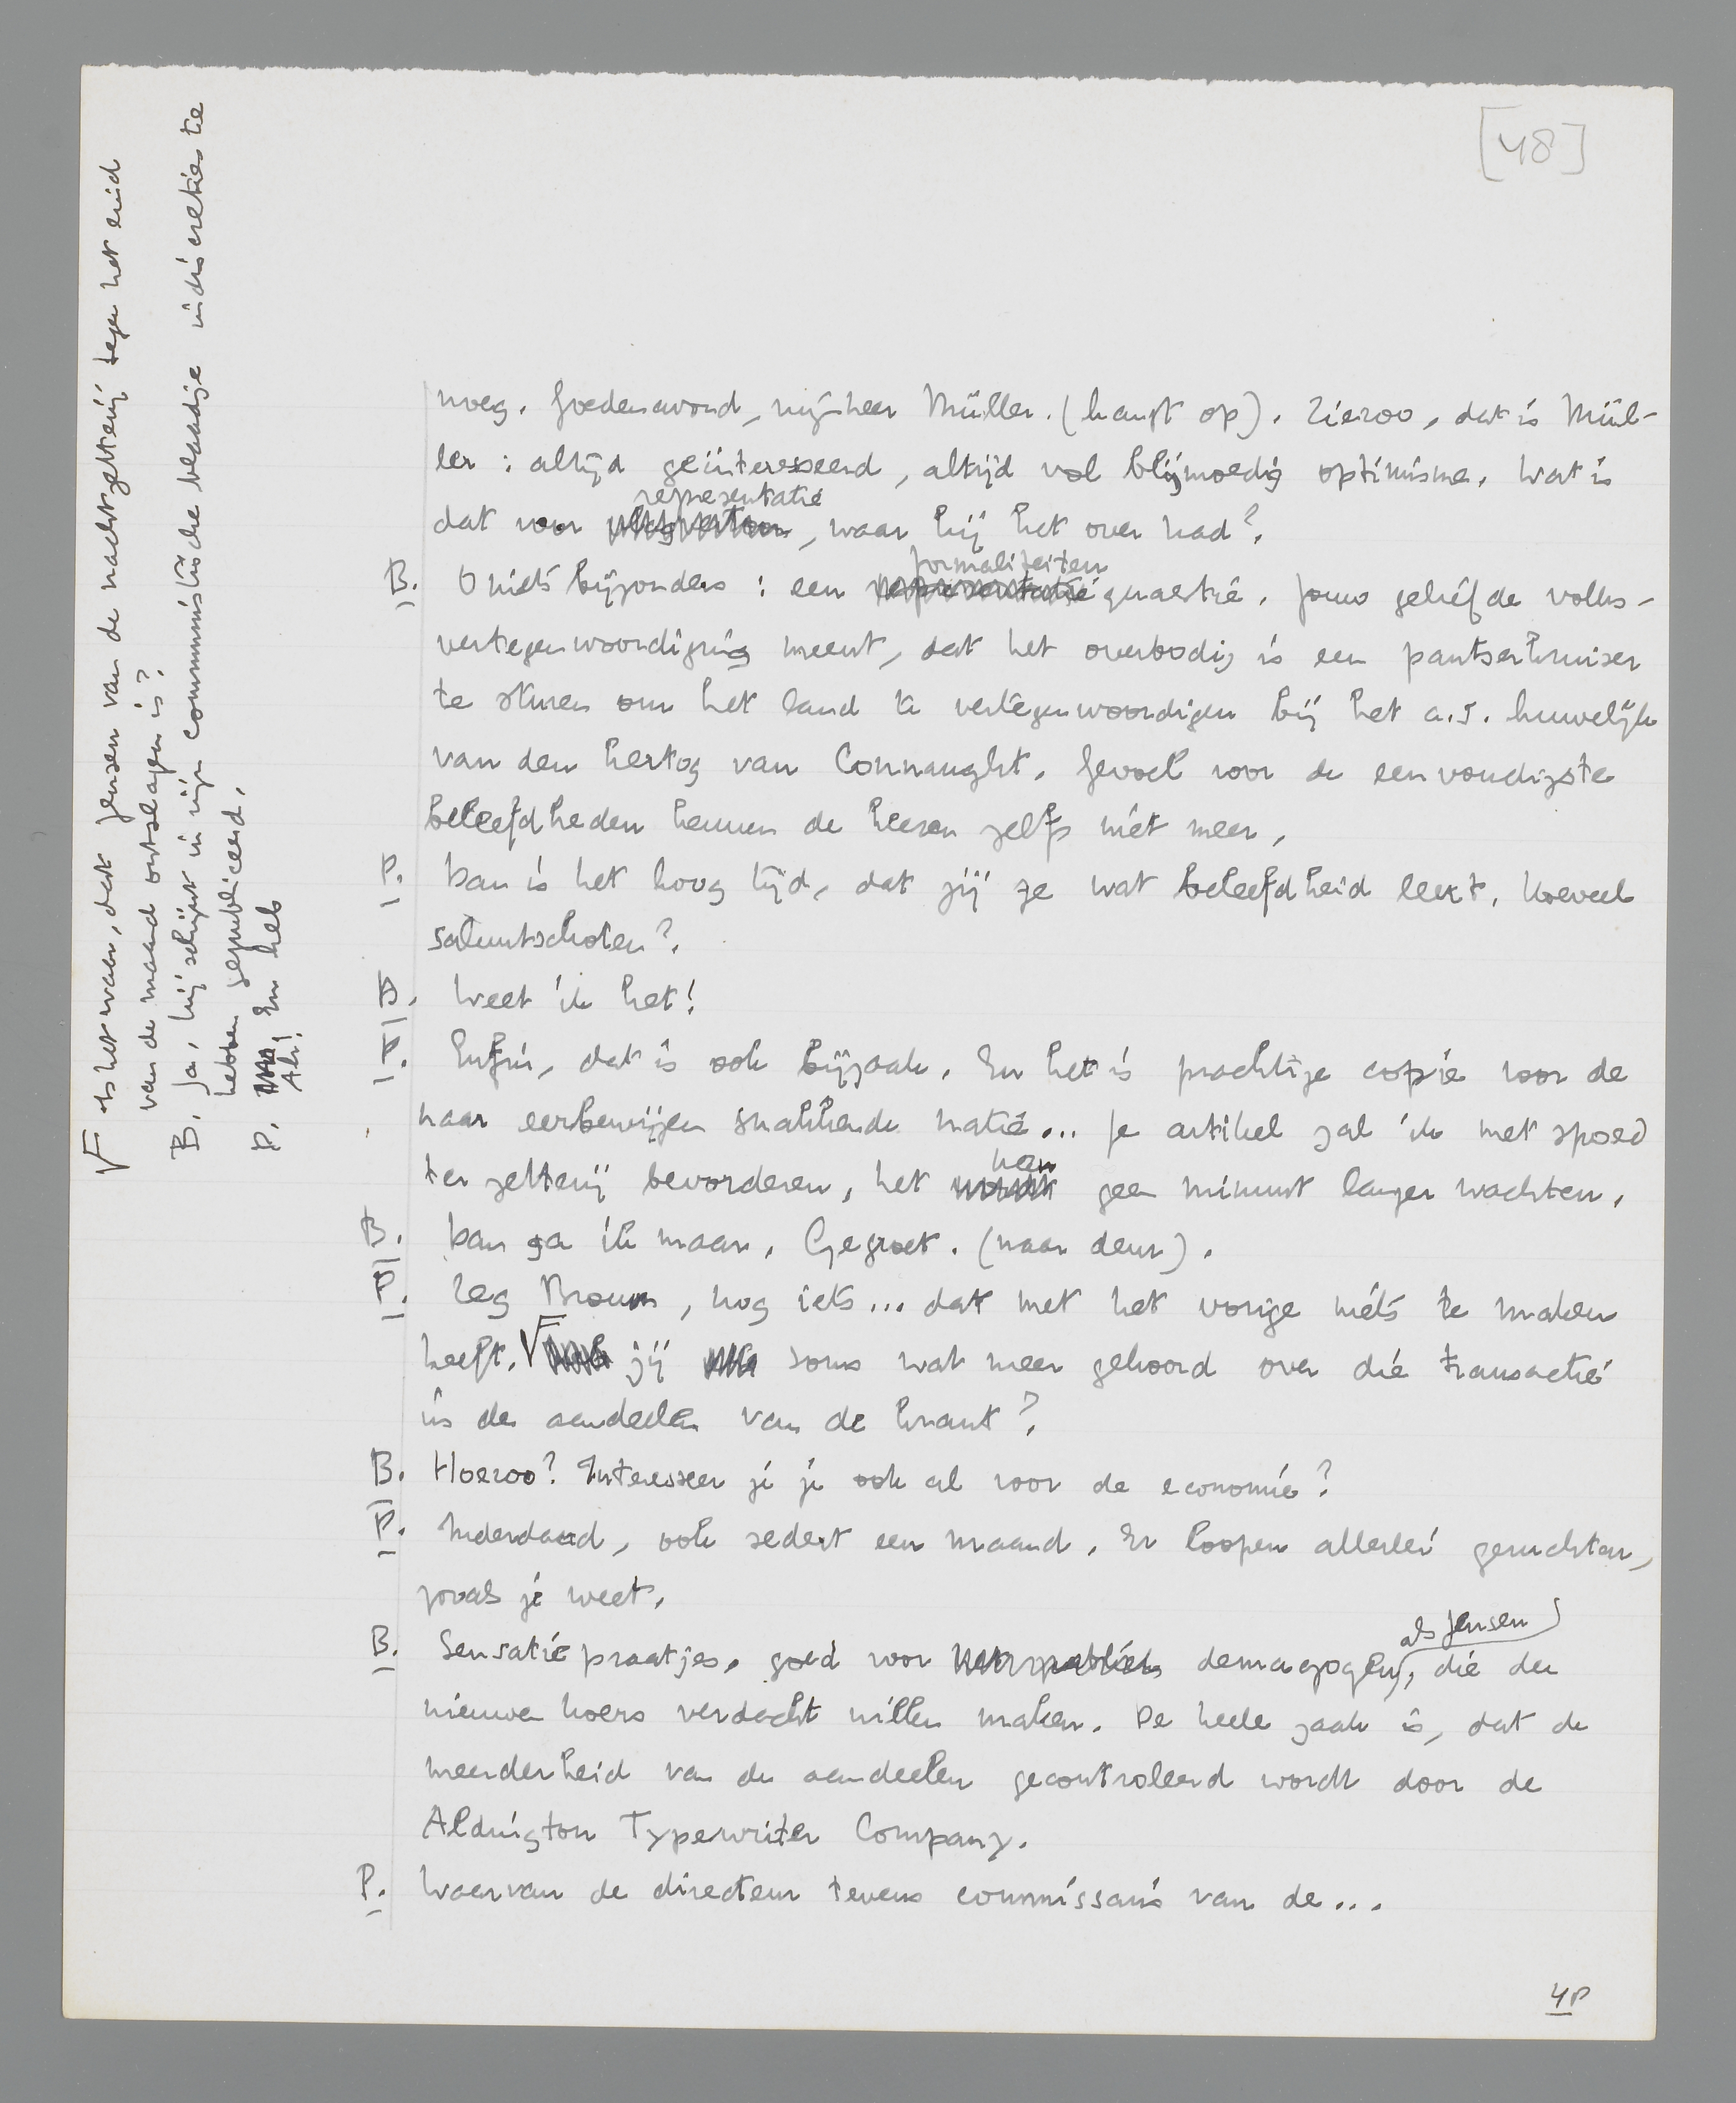 [48]
noeg. Goedenavond, mijnheer Müller. (hangt op). Ziezoo, dat is Mül-
ler: altijd geïnteresseerd, altijd vol blijmoedig optimisme. Wat is
representatie
dat voor, waar hij het over had?
formaliteiten
B. O niets bijzonders: een representatie quaestie. Jouw geliefde volks-
vertegenwoordiging meent, dat het overbodig is een pantserkruiser
te sturen om het land te vertegenwoordigen bij het a.s. huwelijk
van den hertog van Connaught. Gevoel voor de eenvoudigste
beleefdheden kennen de heeren zelfs niet meer.
P. Dan is het hoog tijd, dat jij ze wat beleefdheid leert. Hoeveel
saluutschoten?
B. Weet ik het!
P. Enfin, dat is ook bijzaak. En het is prachtige copie voor de
naar eerbewijzen snakkende natie... Je artikel zal ik met spoed
kan
ter zetterij bevorderen, het wordt geen minuut langer wachten.
B. Dan ga ik maar. Gegroet. (naar deur).
P. Zeg Brown, nog iets... dat met het vorige niets te maken
heeft. Heb jij soms wat meer gehoord over die transactie
in de aandeelen van de krant?
B. Hoezoo? Interesseer je je ook al voor de economie?
P. Inderdaad, ook sedert een maand. Er loopen allerlei geruchten,
zooals je weet.
als Jensen
B. Sensatiepraatjes, goed voor het publiek demagogen, die den
nieuwen koers verdacht willen maken. De heele zaak is, dat de
meerderheid van de aandeelen gecontroleerd wordt door de
Aldington Typewriter Company.
P. Waarvan de directeur tevens commissaris van de...
4P
Is het waar, dat Jensen van de nachtzetterij tegen het eind
van de maand ontslagen is?
B. Ja, hij schijnt in zijn communistische blaadje indiscreties te
hebben gepubliceerd.
P. En heb
Ah!